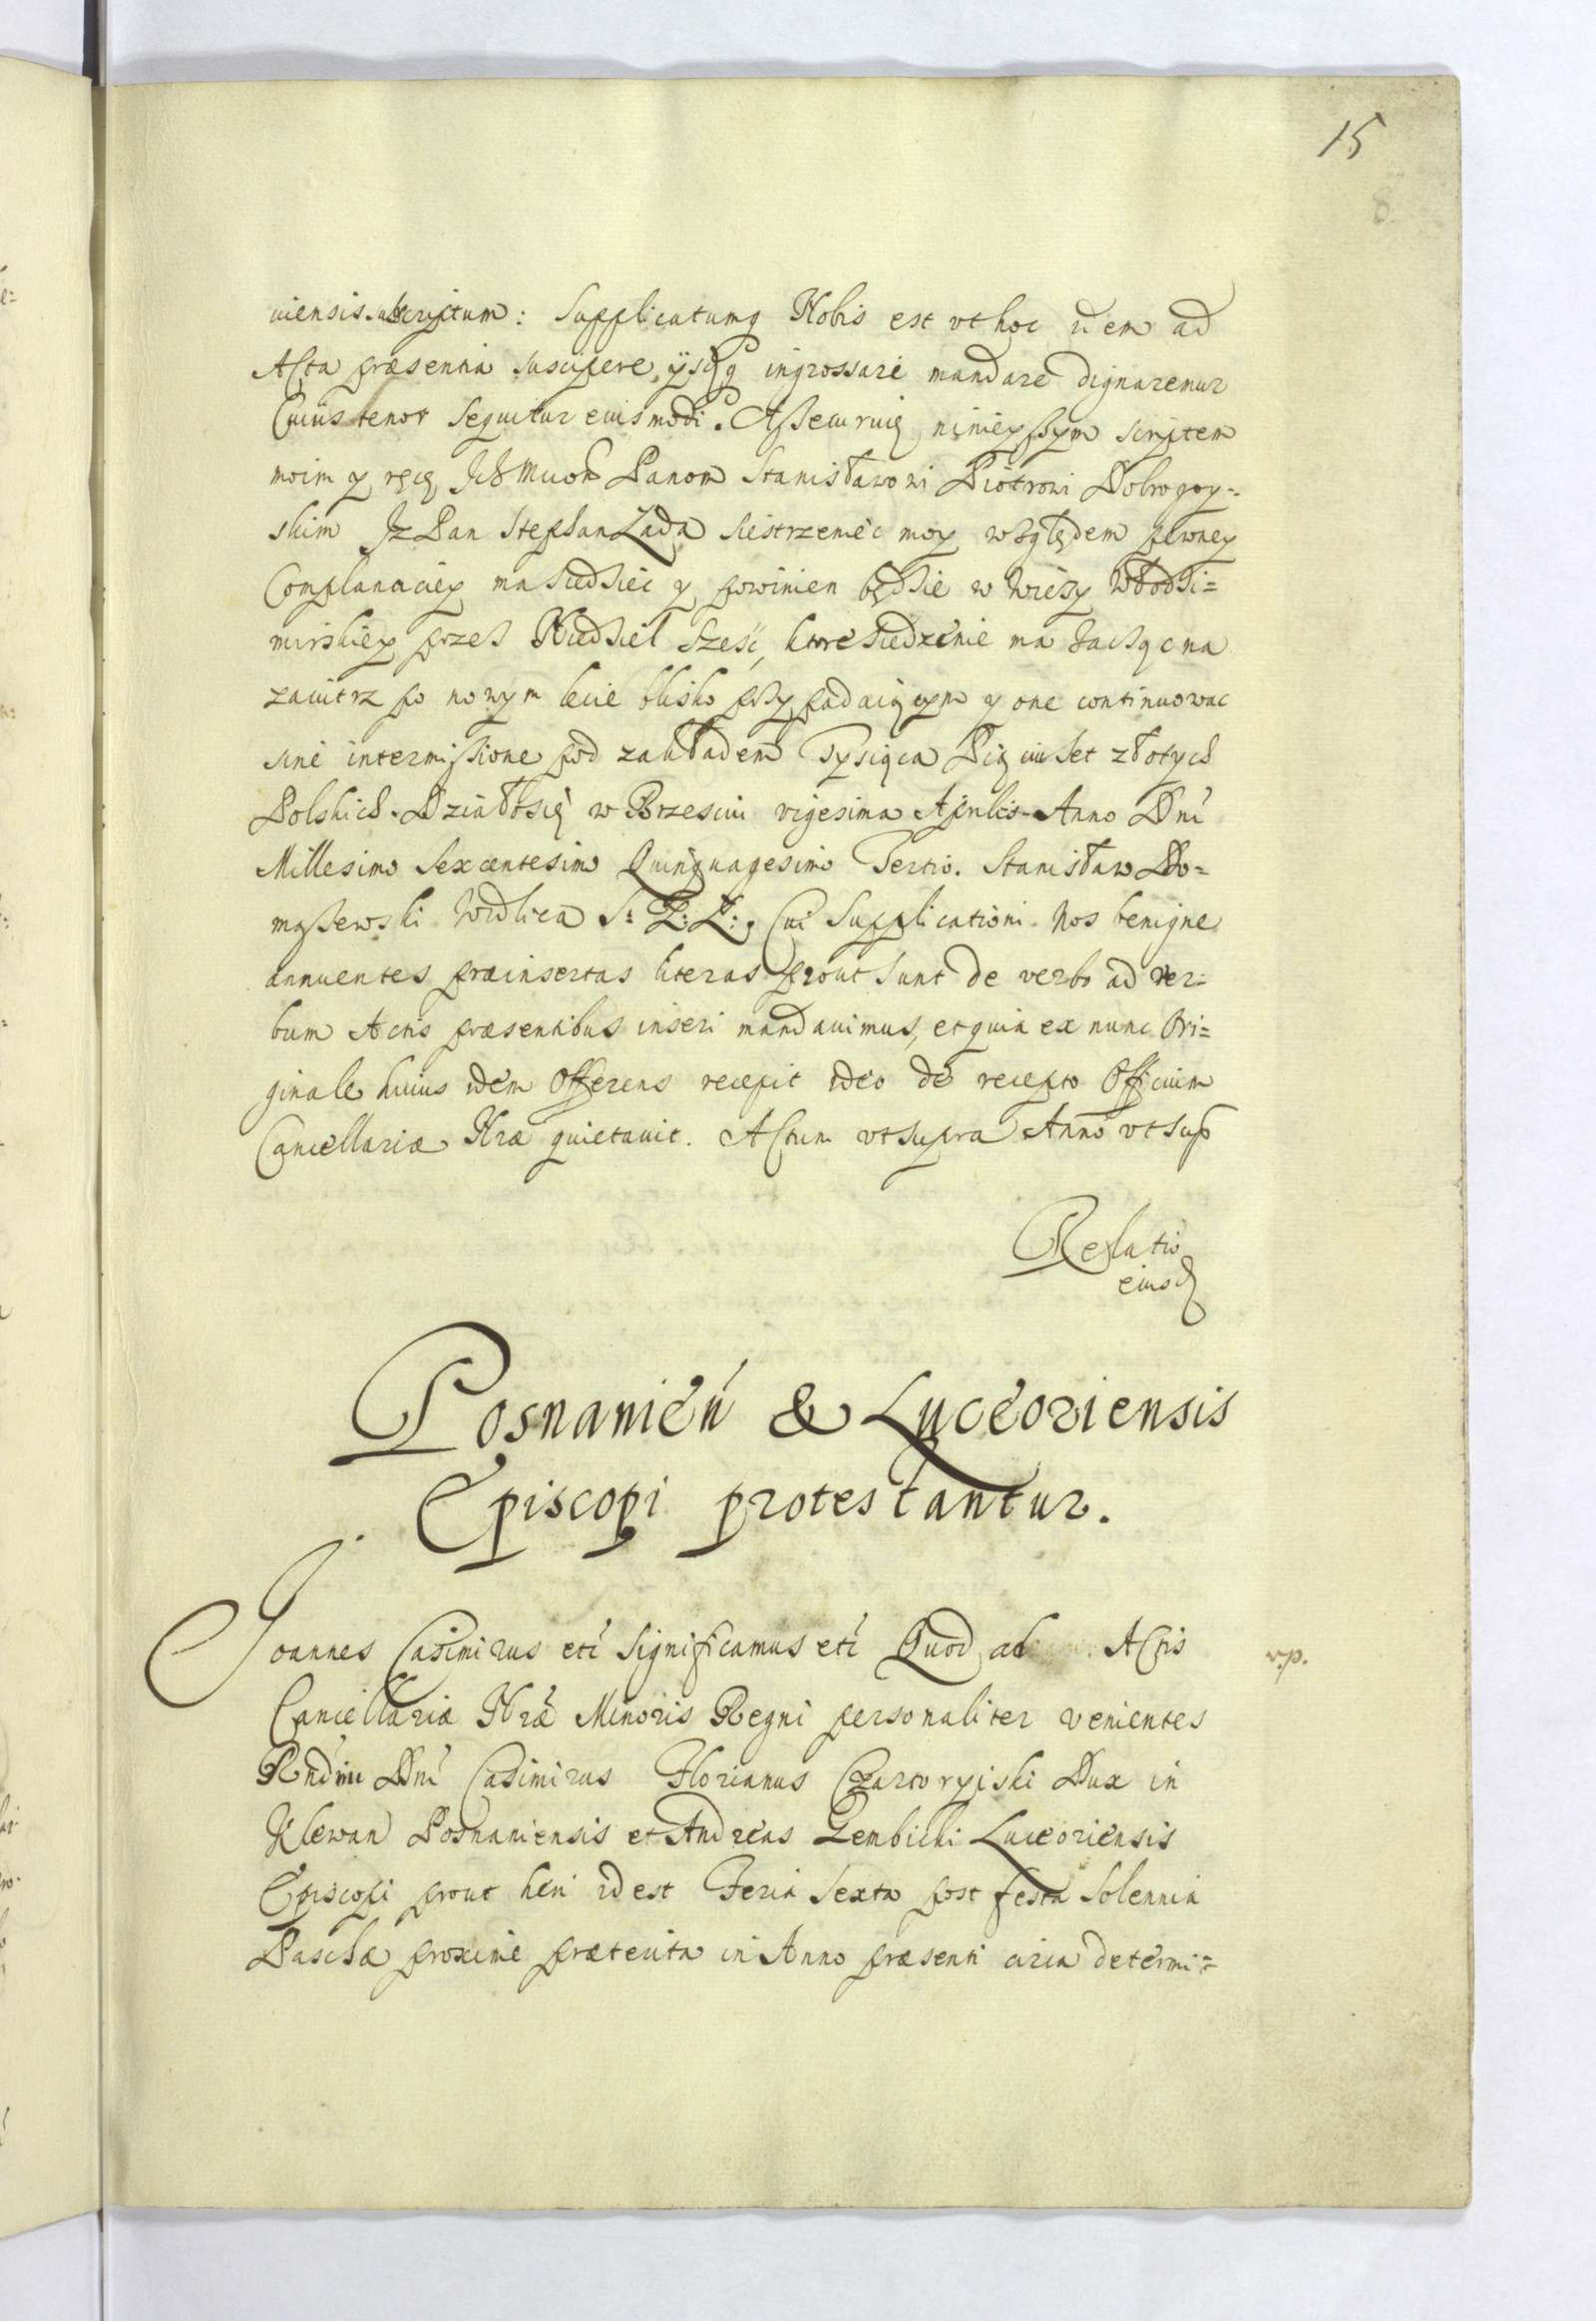 15
8
uiensis subscriptum: Supplicatumq Nobis est vt hoc idem ad
Acta præsentia suscipere, ijsdq ingrossare mandare dignaremur
Cuius tenor sequitur eiusmodi. Assecuruię ninieyszym scriptem
moim y ręcę Ich Mciom Panom Stanisławowi Piotrowi Dobrogoy=
skim Jz Pan Stephan Łada siestrzeniec moy względem pewney
Complanaciey ma siedzieć y powinien będzie w Wieży Włodzi=
mirskiey przez Niedziel Sześć, ktore siedzenie ma zacząc na
zaiutrz po nowym lecie blisko przypadaiącym y one continuowac
sine intermissione pod zakładem Tysiąca Pięciuset złotych
Polskich. Działosię w Brzesciu vigesima Aprilis Anno Dni
Millesimo Sexcentesimo Quinquagesimo Tertio. Stanisław Do=
maszewski Wodlica S: Z: Ł: Cui Supplicationi Nos benigne
annuentes præinsertas literas prout sunt de verbo ad ver=
bum Actis præsentibus inseri mandauimus, et quia ex nunc Ori=
ginale huius idem Offerens recepit ideo de recepto Officium
Cancellariæ Nræ quietauit. Actum vt supra Anno vt sup
Relatio
eiusd
Posnanień & Luceoriensis
Episcopi protestantur.
Joannes Casimirus etć Significamus etć Quod ad Actis
v.p.
Cancellariæ Nræ Minoris Regni personaliter venientes
Rndmi Dni Casimirus Florianus Czartoryiski Dux in
Klewan Posnaniensis et Andreas Gembicki Luceoriensis
Episcopi prout heri id est Feria Sexta post festa solennia
Paschæ proxime præterita in Anno præsenti circa determi=